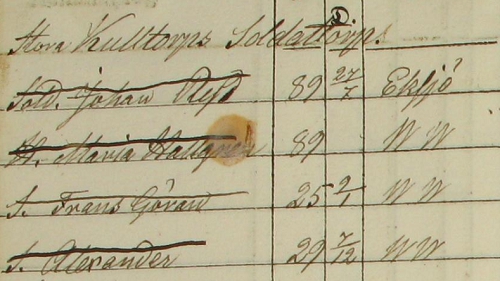 Stora Kulltorps Soldattorp.
Sold. Johan 89 27/7 Eksjö
H. Maria Hallgren 89 " "
S. Frans Göran 25 2/1 " "
S. Alexander 29 7/12 " "